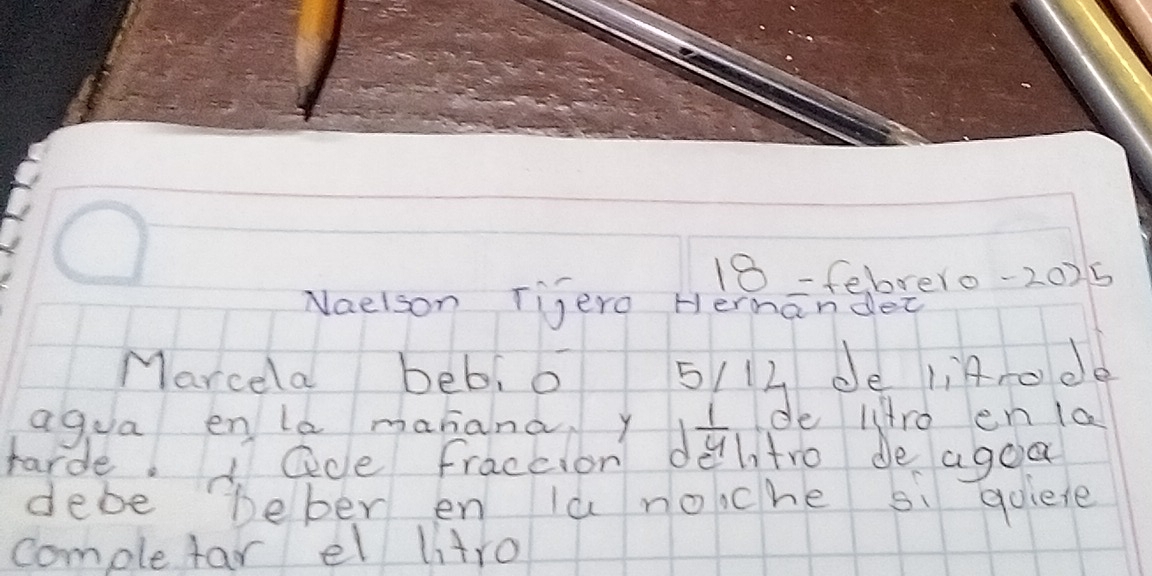 18 - febrero - 2025
Naelson Tijero Hernández
Marcela bebió 5/12 de litro de
agua en la mañana y 1/4 de litro en la
tarde. ¿Que fraccion de litro de agua
debe beber en la noche si quiere
completar el litro